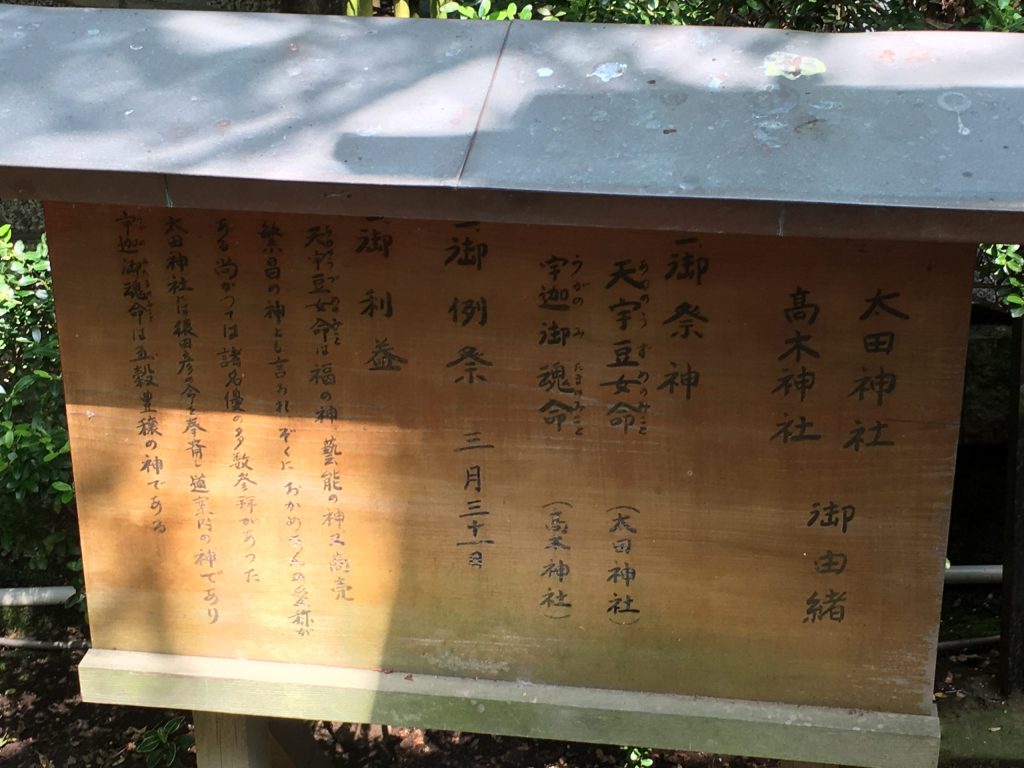 太田神社
高木神社
御由緒
一、御祭神
天宇豆女命（太田神社）
あめのうずめのみこと
宇迦御魂命（高木神社）
うがのみたまのみこと
一、御例祭 三月三十一日
一、御利益
天宇豆女命は福の神、藝能の神又商売
繁昌の神とも言われ ぞくに おかめさんの愛称が
ある 尚かつては諸名優の多数参拝があった
太田神社には猿田彦の命を奉斉し道案内の神であり
宇迦御魂命は五穀豊穣の神である